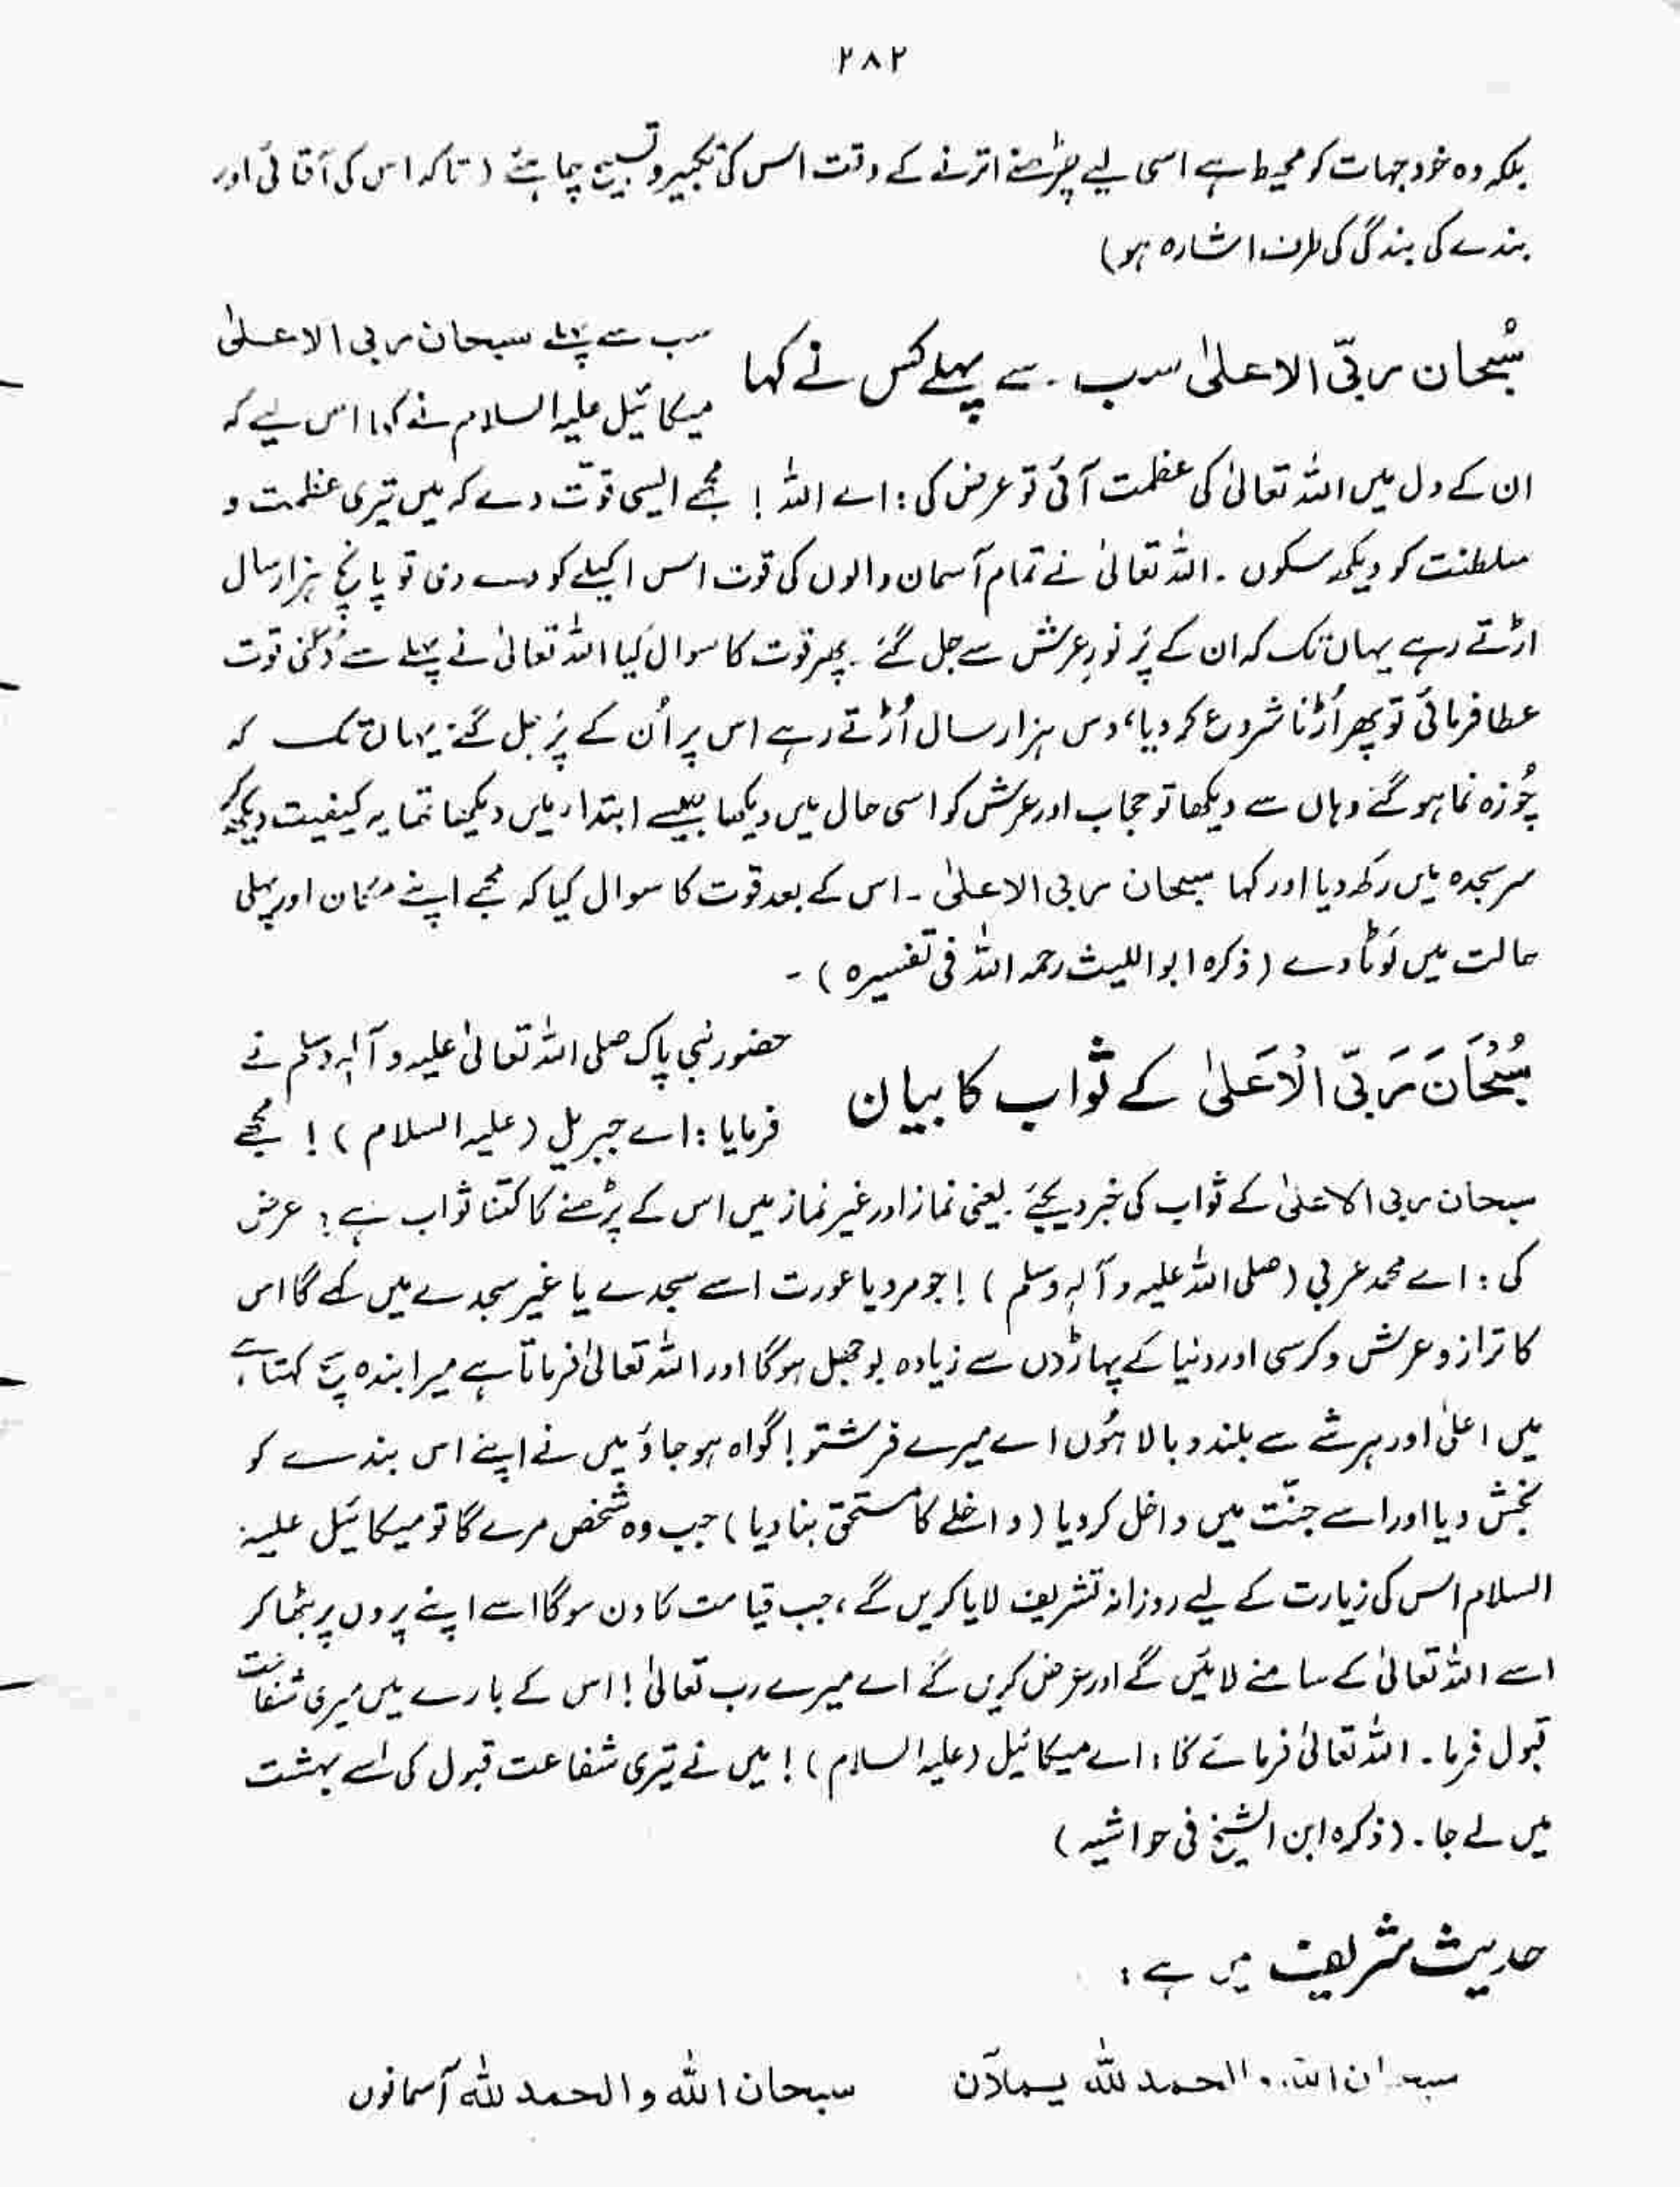 ۲۸۲
بلکہ وہ خود جہات کو محیط ہے اسی لیے چڑھنے اترنے کے وقت اس کی تکبیر و تسبیح چاہئے (تاکہ اس کی آقائی اور
بندے کی بندگی کی طرف اشارہ ہو)
سُبحان ربّی الاعلیٰ سب سے پہلے کس نے کہا
سب سے پہلے سبحان ربی الاعلیٰ
میکائیل علیہ السلام نے کہا اس لیے کہ
ان کے دل میں اللہ تعالیٰ کی عظمت آئی تو عرض کی : اے اللہ ! مجھے ایسی قوّت دے کہ میں تیری عظمت و
سلطنت کو دیکھ سکوں ۔ اللہ تعالیٰ نے تمام آسمان والوں کی قوت اس اکیلے کو دے دی تو پانچ ہزار سال
اڑتے رہے یہاں تک کہ ان کے پَر نورِ عرش سے جل گئے ۔ پھر قوت کا سوال کیا اللہ تعالیٰ نے پہلے سے دُگنی قوت
عطا فرمائی تو پھر اُڑنا شروع کر دیا، دس ہزار سال اُڑتے رہے اس پر اُن کے پَر جل گئے یہاں تک کہ
چُوزہ نما ہو گئے وہاں سے دیکھا تو حجاب اور عرش کو اسی حال میں دیکھا جیسے ابتدا میں دیکھا تھا یہ کیفیت دیکھ کر
سر سجدہ میں رکھ دیا اور کہا سبحان ربی الاعلیٰ ۔ اس کے بعد قوت کا سوال کیا کہ مجھے اپنے مکان اور پہلی
حالت میں لَوٹا دے (ذکرہ ابو اللیث رحمہ اللہ فی تفسیرہ) ۔
سُبْحَانَ رَبّیَ الْاَعَلیٰ کے ثواب کا بیان
حضور نبی پاک صلی اللہ تعالیٰ علیہ و آلہٖ وسلم نے
فرمایا : اے جبریل (علیہ السلام) ! مجھے
سبحان ربی الاعلیٰ کے ثواب کی خبر دیجئے ۔ یعنی نماز اور غیر نماز میں اس کے پڑھنے کا کتنا ثواب ہے ؟ عرض
کی : اے محمد عربی (صلی اللہ علیہ و آلہٖ وسلم) ! جو مرد یا عورت اسے سجدے یا غیر سجدے میں کہے گا اس
کا ترازو عرش و کرسی اور دنیا کے پہاڑوں سے زیادہ بوجھل ہوگا اور اللہ تعالیٰ فرماتا ہے میرا بندہ سچ کہتا ہے
میں اعلیٰ اور ہر شے سے بلند و بالا ہُوں اے میرے فرشتو ! گواہ ہو جاؤ میں نے اپنے اس بندے کو
بخش دیا اور اسے جنّت میں داخل کر دیا (داخلے کا مستحق بنا دیا) جب وہ شخص مرے گا تو میکائیل علیہ
السلام اس کی زیارت کے لیے روزانہ تشریف لایا کریں گے ، جب قیامت کا دن ہوگا اسے اپنے پروں پر بٹھا کر
اسے اللہ تعالیٰ کے سامنے لائیں گے اور عرض کریں گے اے میرے رب تعالیٰ ! اس کے بارے میں میری شفاعت
قبول فرما ۔ اللہ تعالیٰ فرمائے گا : اے میکائیل (علیہ السلام) ! میں نے تیری شفاعت قبول کی اسے بہشت
میں لے جا ۔ (ذکرہ ابن الشیخ فی حواشیہ)
حدیث شریف میں ہے :
سبحان اللہ والحمد للہ یملآن
سبحان اللہ والحمد للہ آسمانوں